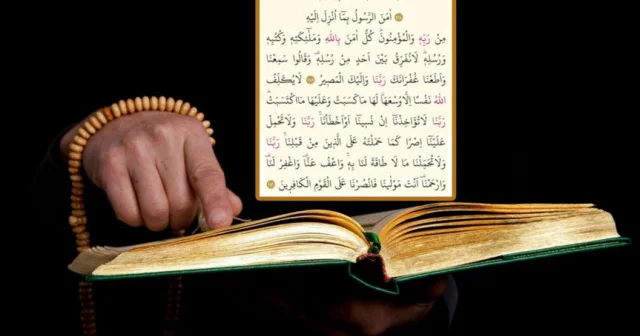 اٰمَنَ الرَّسُولُ بِمَٓا اُنْزِلَ اِلَيْهِ
مِنْ رَبِّهٖ وَالْمُؤْمِنُونَۜ كُلٌّ اٰمَنَ بِاللّٰهِ وَمَلٰٓئِكَتِهٖ وَكُتُبِهٖ
وَرُسُلِهٖۜ لَا نُفَرِّقُ بَيْنَ اَحَدٍ مِنْ رُسُلِهٖۜ وَقَالُوا سَمِعْنَا
وَاَطَعْنَا غُفْرَانَكَ رَبَّنَا وَاِلَيْكَ الْمَصٖيرُ لَا يُكَلِّفُ
اللّٰهُ نَفْسًا اِلَّا وُسْعَهَاۜ لَهَا مَا كَسَبَتْ وَعَلَيْهَا مَا اكْتَسَبَتْۜ
رَبَّنَا لَا تُؤَاخِذْنَٓا اِنْ نَسٖينَٓا اَوْ اَخْطَأْنَاۚ رَبَّنَا وَلَا تَحْمِلْ
عَلَيْنَٓا اِصْرًا كَمَا حَمَلْتَهُ عَلَى الَّذٖينَ مِنْ قَبْلِنَاۚ رَبَّنَا
وَلَا تُحَمِّلْنَا مَا لَا طَاقَةَ لَنَا بِهٖۚ وَاعْفُ عَنَّا۠ وَاغْفِرْ لَنَا۠
وَارْحَمْنَا۠ اَنْتَ مَوْلٰينَا فَانْصُرْنَا عَلَى الْقَوْمِ الْكَافِرٖينَ